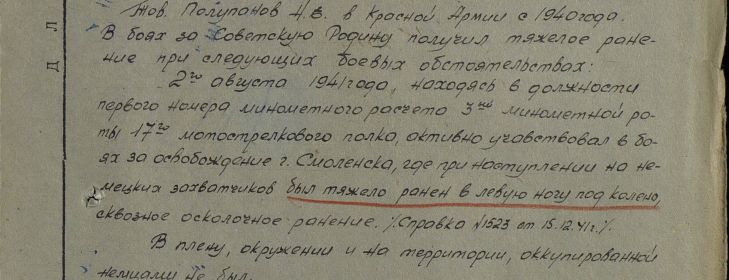 Тов. Полупанов Н.Е. в Красной Армии с 1940 года.
В боях за Советскую Родину получил тяжелое ране-
ние при следующих боевых обстоятельствах:
2го августа 1941 года, находясь в должности
первого номера минометного расчета 3ей минометной ро-
ты 17го мотострелкового полка, активно учавствовал в бо-
ях за освобождение г. Смоленска, где при наступлении на не-
мецких захватчиков был тяжело ранен в левую ногу под колено,
сквозное осколочное ранение. /Справка №1523 от 15.12.41г./.
В плену, окружении и на территории, оккупированной
немцами не был.
Д Л